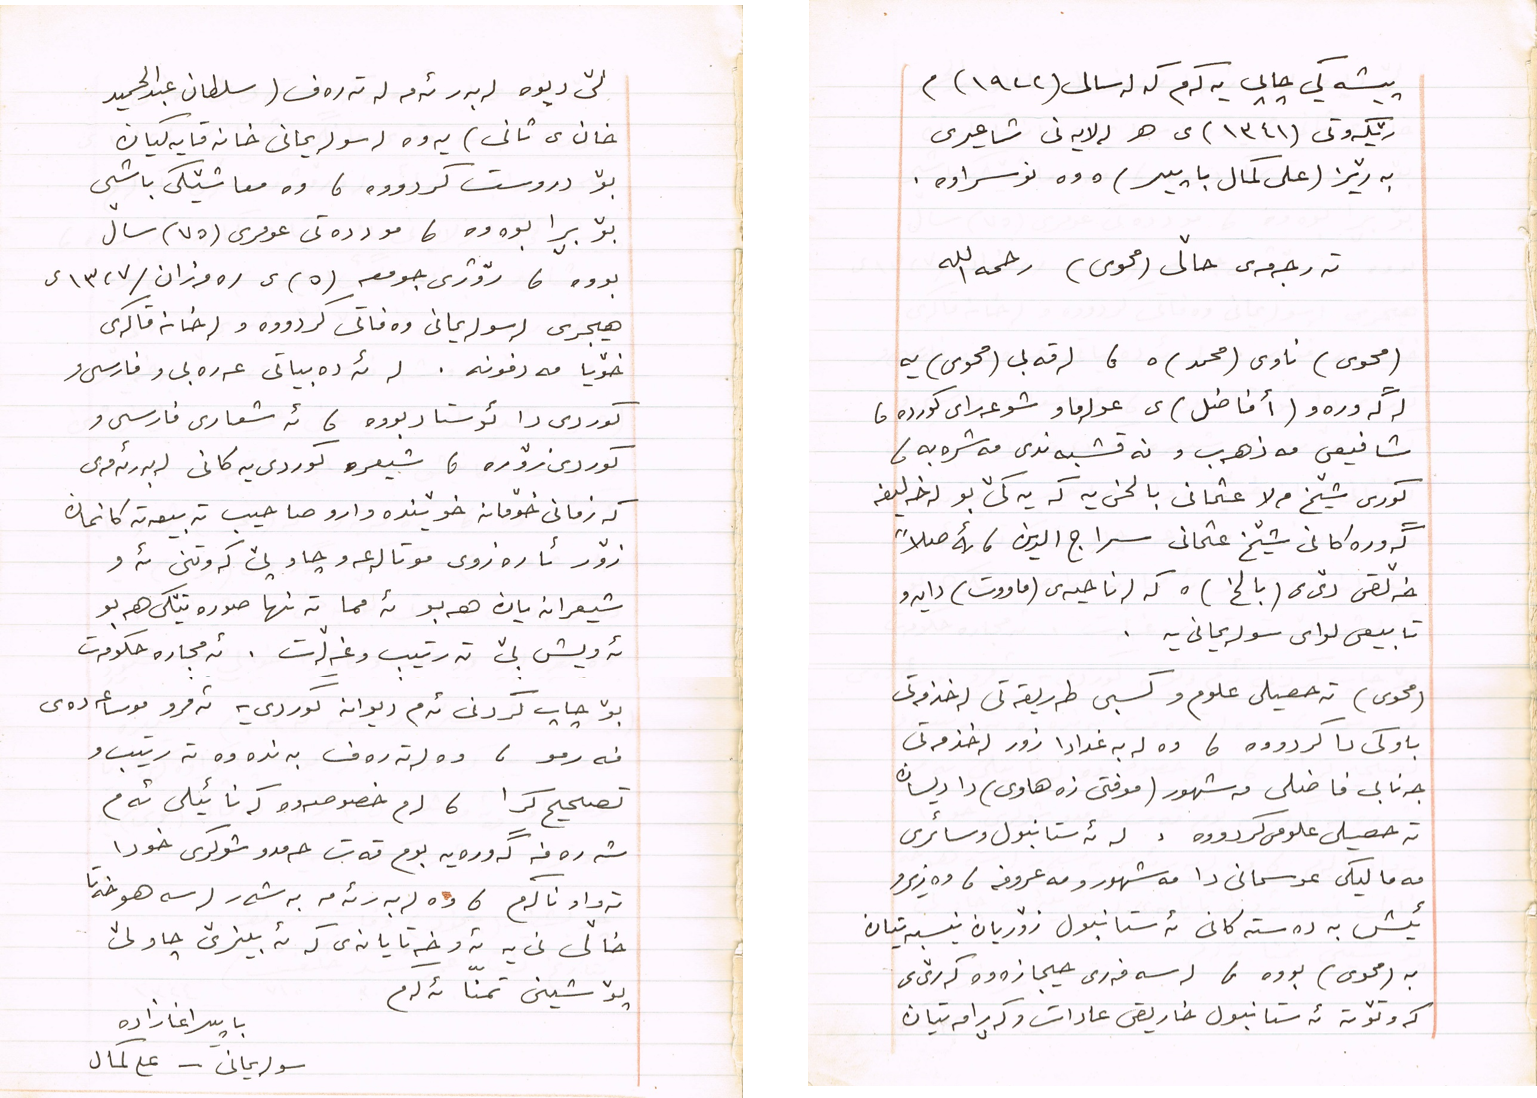 پیشه کي چاپی یه کەم که لەسالی (١٩٢٢) م
ڕێکەوتی (١٣٤١) ی هەر لەلایەنی شاعیری
بەڕێز (علی کمال باپیر) ەوە نوسراوە .
تەرجەمەی حاڵی (محوی) رحمه الله
(محوی) ناوی (محمد) ە ، لەقەبی (محوی) یە
لە گەورەو (أفاضل) ی عولەماو شوعەرای کوردە ،
شافیعی مەذهەب و نەقشبەندی مەشرەبە ،
کوری شێخ مەلا عثمانی بالخی یە که یەکێ بو لەخەلیفە
گەورەکانی شێخ عثمانی سراج الدین ، أصلاً
خەڵقی دێی (بالخ) ە کە لەناحیەی (ماووت) دایەو
تابیعی لوای سولەیمانی یە .
(محوی) تەحصیلی علوم و کسبی طەریقەتی لەخذمەتی
باوکی دا کردووە ، وە لە بەغدادا زور لەخذمەتی
جەنابی فاضلی مەشهور (موفتی زەهاوی) دا دیسان
تەحصیلی علومی کردووە ، لە ئەستانبول وسائری
مەمالیکی عوسمانی دا مەشهور ومەعروفە ، وەزیرو
ئیش بەدەستەکانی ئەستانبول زۆریان نیسبەتیان
بە (محوی) بووە ، لەسەفەری حیجازەوە کەڕێی
کەوتۆتە ئەستانبول خاریقی عادات وکەرامەتیان
لێ دیوە لەبەر ئەمە لەتەرەف (سلطان عبدالحمید
خان ی ثانی) یەوە لەسولەیمانی خانەقایەکیان
بۆ دروست کردووە ، وە معاشێکی باشی
بۆ بڕا بوەوە ، موددەتی عومری (٧٥) ساڵ
بووە ، ڕۆژی جومعە (٥) ی رەمزان /١٣٢٧ ی
هیجری لەسولەیمانی وەفاتی کردووە و لەخانەقاکەی
خۆیا مەدفونە . لە ئەدەبیاتی عەرەبی و فارسی و
کوردی دا ئوستاد بووە ، ئەشعاری فارسی و
کوردی زۆرە ، شیعرە کوردی یەکانی لەبەرئەوەی
کە زمانی خۆمانە خوێندەوارو صاحیب تەبیعەتەکانمان
زۆر ئارەزوی موتالەعەو چاو پێ کەوتنی ئەو
شیعرانەیان هەبو ئەمما تەنها صورەتێکی هەبو
ئەویش بێ تەرتیب وغەڵەت . ئەمجارە حکومەت
بۆ چاپ کردنی ئەم دیوانە کوردی یە ئەمرو موساعەدەی
فەرمو ، وە لەتەرەف بەندەوە تەرتیب و
تصحیح کرا ، لەم خصوصەوە کە نائیلی ئەم
شەرەفە گەورەیە بوم قەت حەمدو شوکری خودا
تەواو ناکەم ، وە لەبەرئەمە بەشەر لەسەهو خەتا
خاڵی نی یە ئەو خەتایانەی کە ئەبینرێ چاو لێ
پۆشینی تمنّا ئەکەم
باپیراغازادە
سولەیمانی – علی کمال